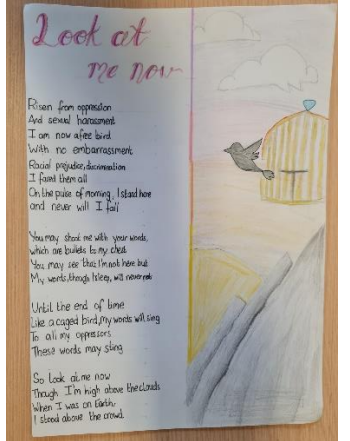 Look at
me now
Risen from oppression
And sexual harassment
I am now a free bird
With no embarrassment
Racial prejudice, discrimination
I faced them all
On the pulse of morning, I stand here
and never will I fall
You may shoot me with your words,
which are bullets to my chest
You may see that I'm not here but
My words, though I sleep, will never rest
Until the end of time
Like a caged bird, my words will sing
To all my oppressors
These words may sting
So look at me now
Though I'm high above the clouds
When I was on Earth,
I stood above the crowd.